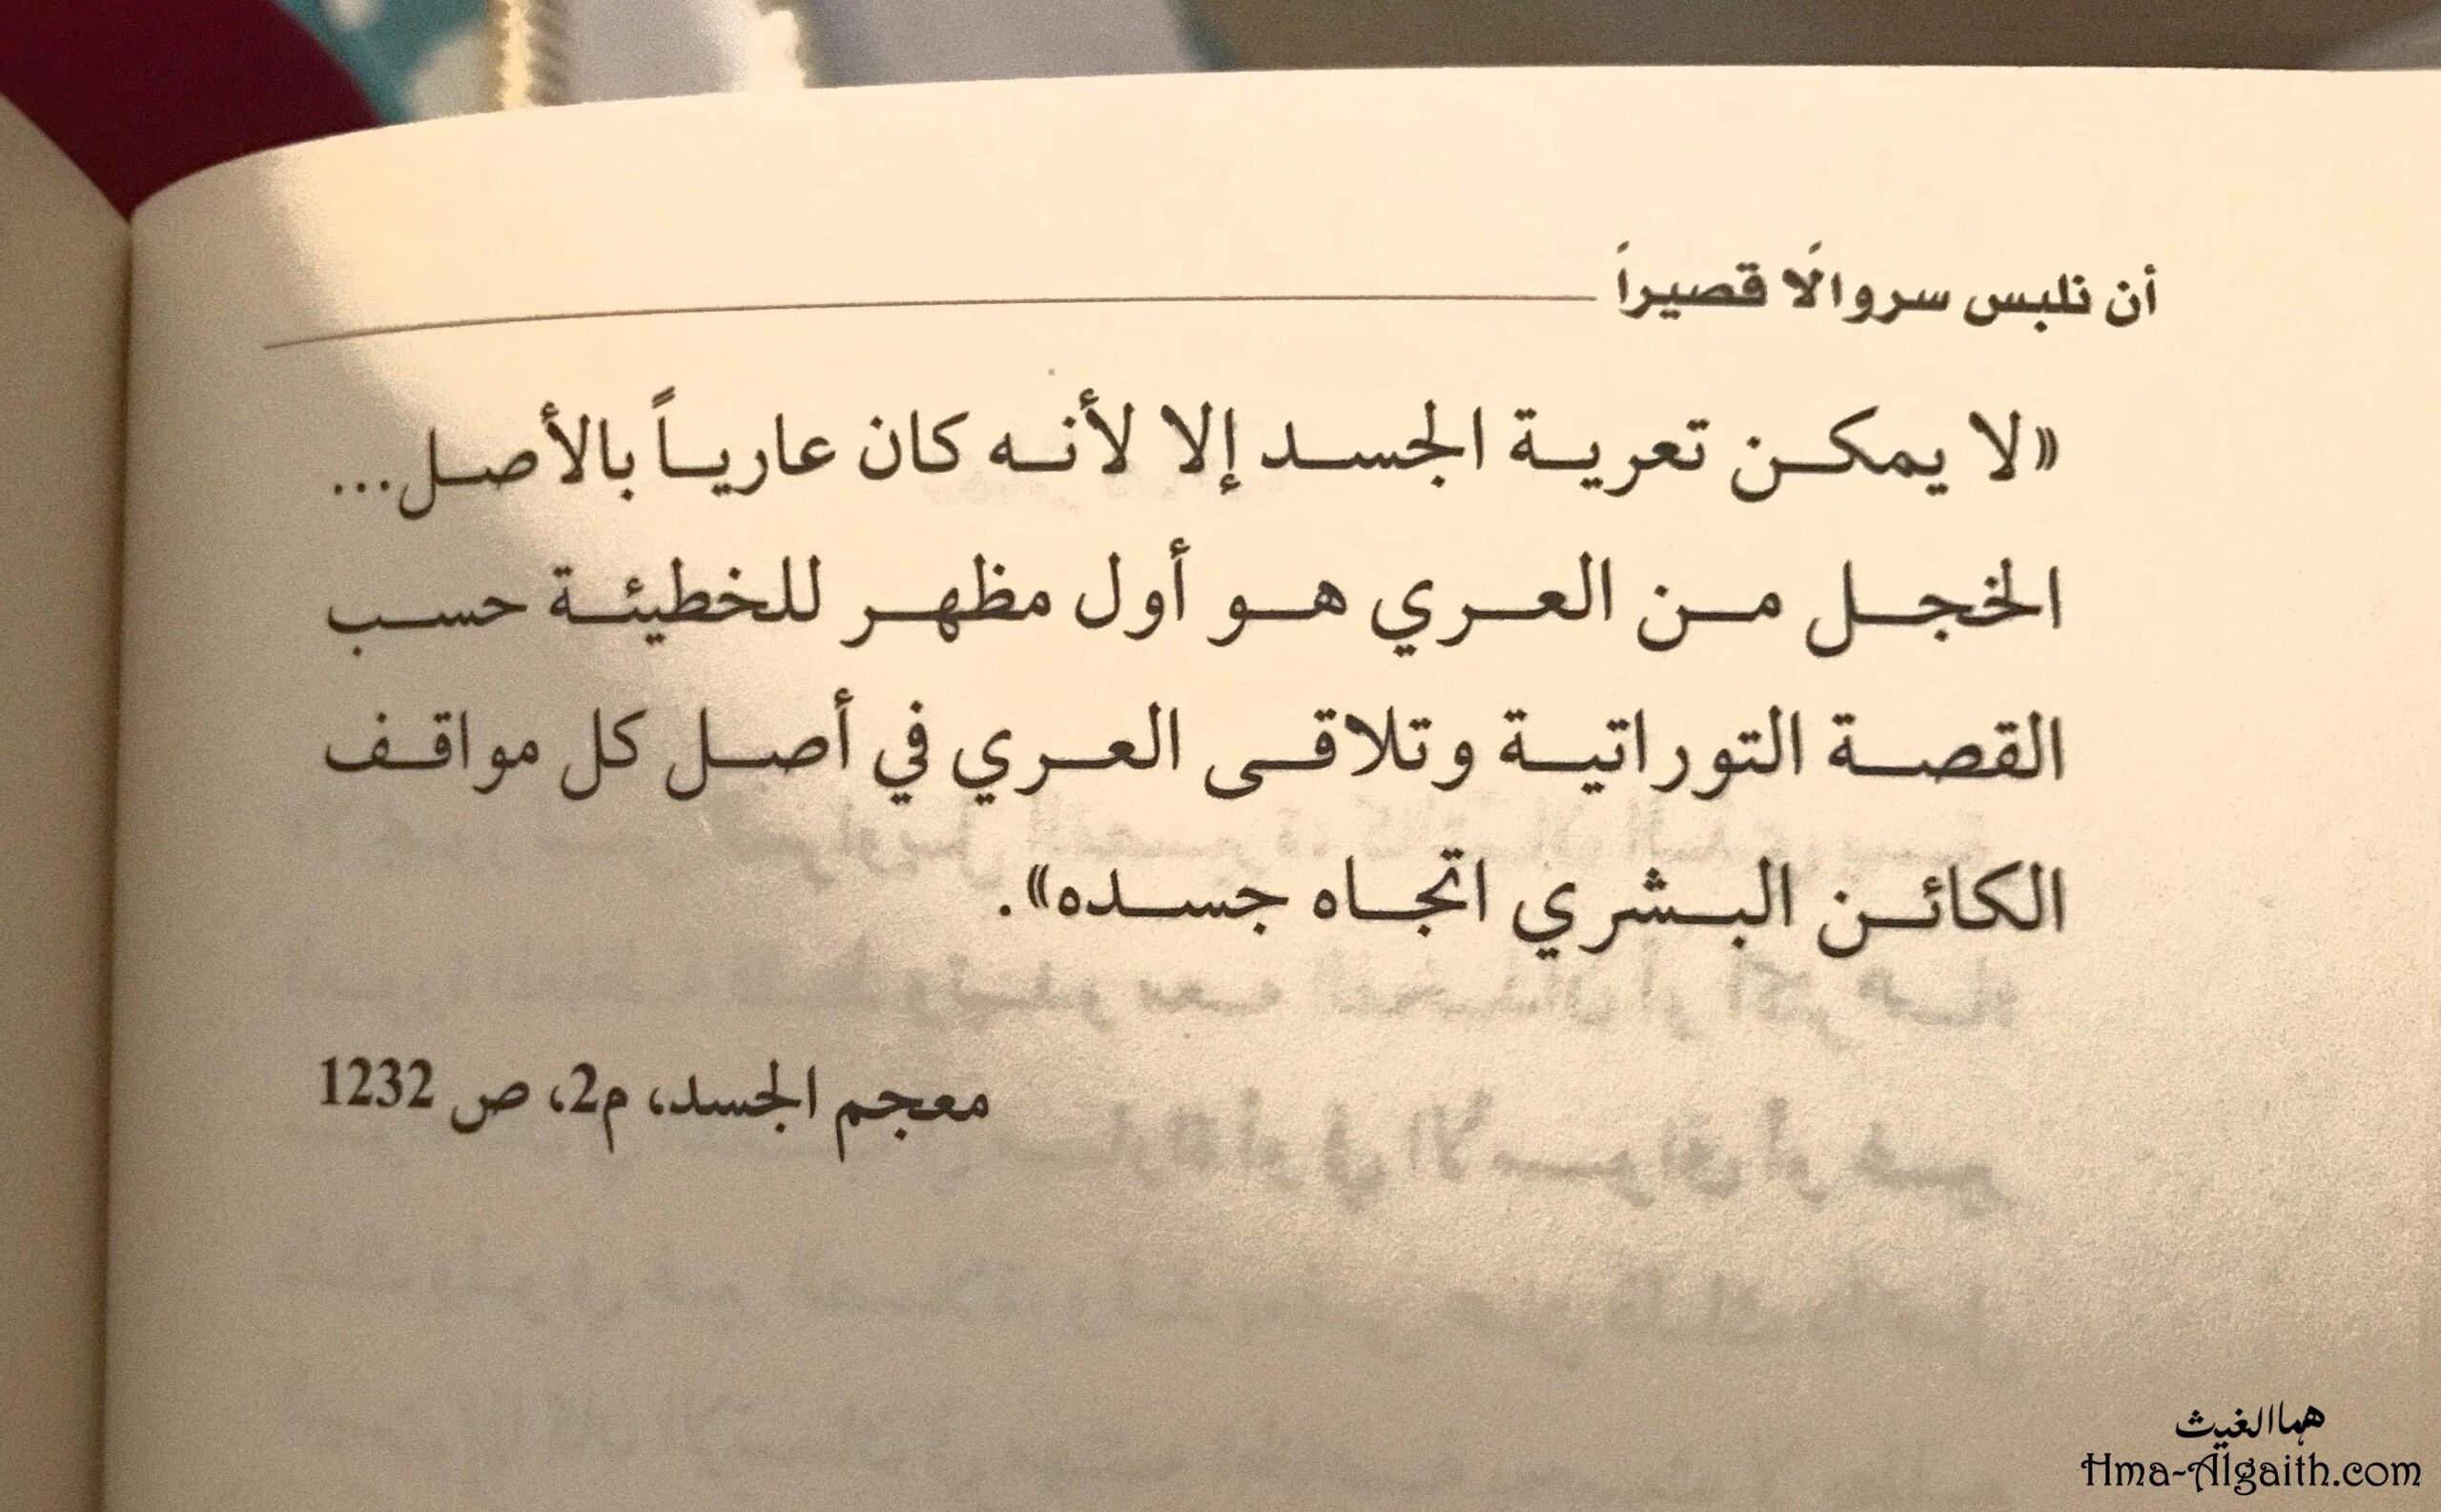 أن نلبس سروالًا قصيراً
«لا يمكن تعرية الجسد إلا لأنه كان عارياً بالأصل...
الخجل من العري هو أول مظهر للخطيئة حسب
القصة التوراتية وتلاقى العري في أصل كل مواقف
الكائن البشري اتجاه جسده».
معجم الجسد، م2، ص 1232
هما الغيث
Hma-Algaith.com